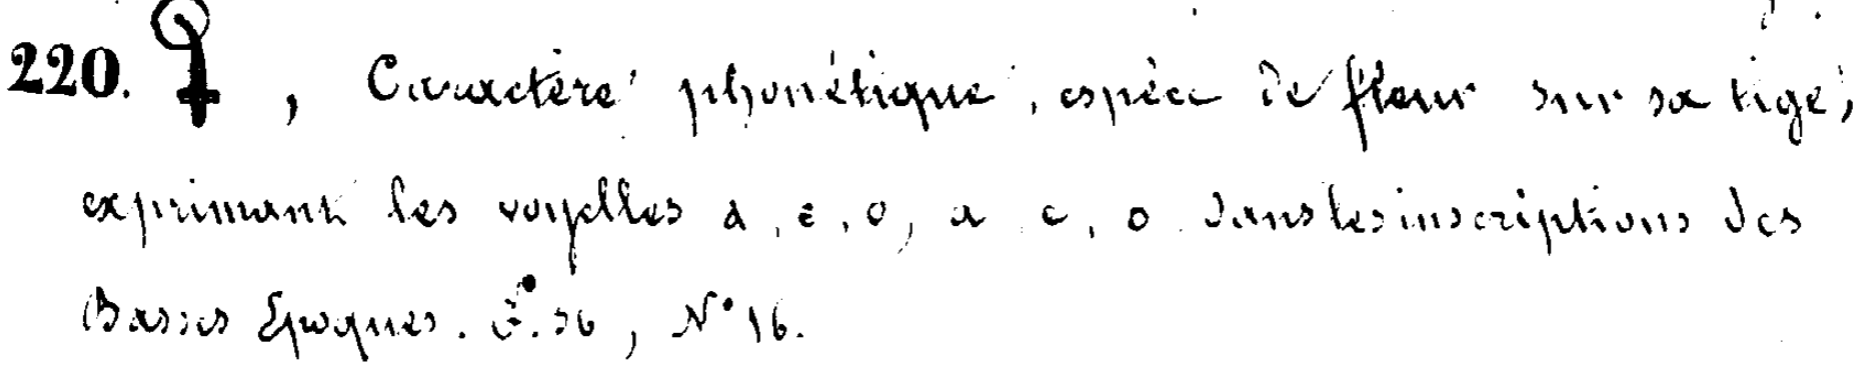 220. , Caractère phonétique, espèce de fleur sur sa tige,
exprimant les voyelles a, e, o, a e, o dans les inscriptions des
Basses Époques. N° 16.